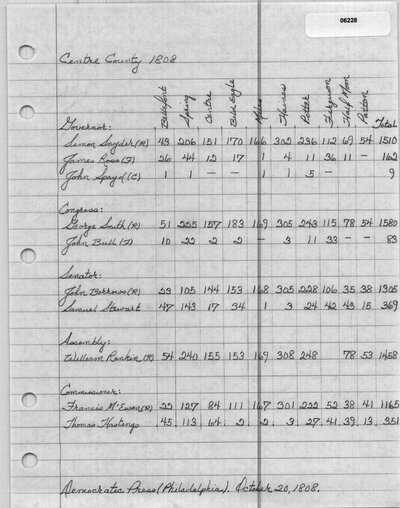 06228
Centre County 1808
Bellefont Spring Centre Bald Eagle Miles Haines Potter Ferguson Half Moon Patton Total
Governor:
Simon Snyder (R) 43 206 151 170 166 302 236 112 69 54 1510
James Ross (F) 26 44 12 17 1 4 11 36 11 — 162
John Spayd (C) 1 1 — — 1 1 5 — 9
Congress:
George Smith (R) 51 225 157 183 169 305 243 115 78 54 1580
John Bull (F) 10 22 2 2 — 3 11 33 — — 83
Senator:
John Burrows (R) 23 105 144 153 168 305 228 106 35 38 1305
Samuel Stewart 47 143 17 34 1 3 24 42 43 15 369
Assembly:
William Rankin (R) 54 240 155 153 169 308 248 78 53 1458
Commissioner:
Francis McEwen (R) 22 127 84 111 167 301 222 52 38 41 1165
Thomas Hastings 45 113 64 2 2 3 27 41 39 13 351
Democratic Press (Philadelphia). October 20, 1808.